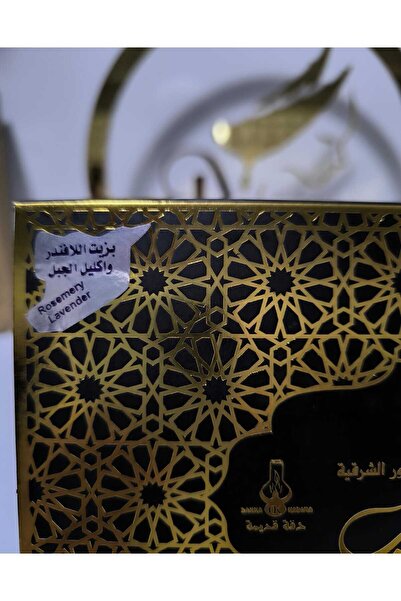 بزيت اللافندر
واكليل الجبل
Rosemery
Lavender
ور الشرقية
DAKKA KADIMA
دقة قديمة